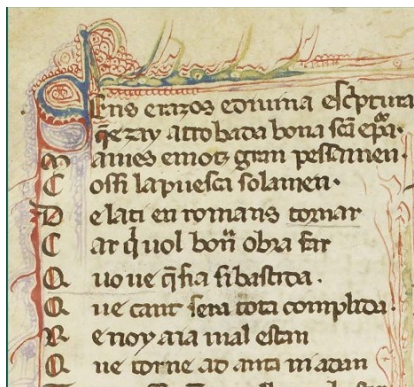 Sens e razos e divina escptura
qe zay atrobada bona sca e pa
M aives e motz gran pessamen.
C ossi la puesca solamen.
D e lati en romans tornar
C ar q uol bon obra far
Q uove q sia si bastida.
Q ue cant sera tota complida.
R e noy aia mal estan
Q ue torne ad anta ni a dan